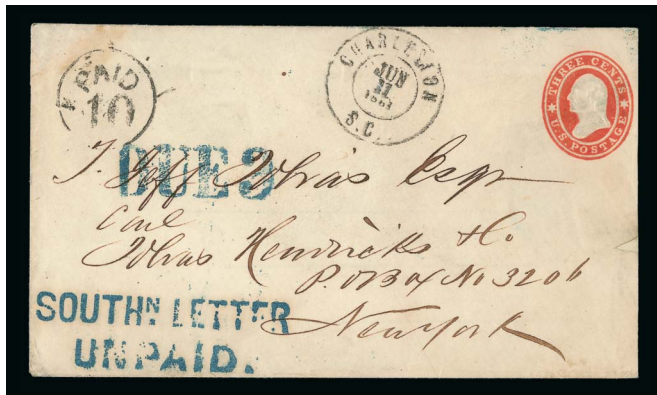 PAID
10
CHARLESTON
JUN
1861
S.C.
THREE CENTS
U.S. POSTAGE
DUE 3
T. Jeff Tobias Esqr
Care
Tobias Hendricks & Co
P.O Box No 3206
New York
SOUTHN LETTER
UNPAID.